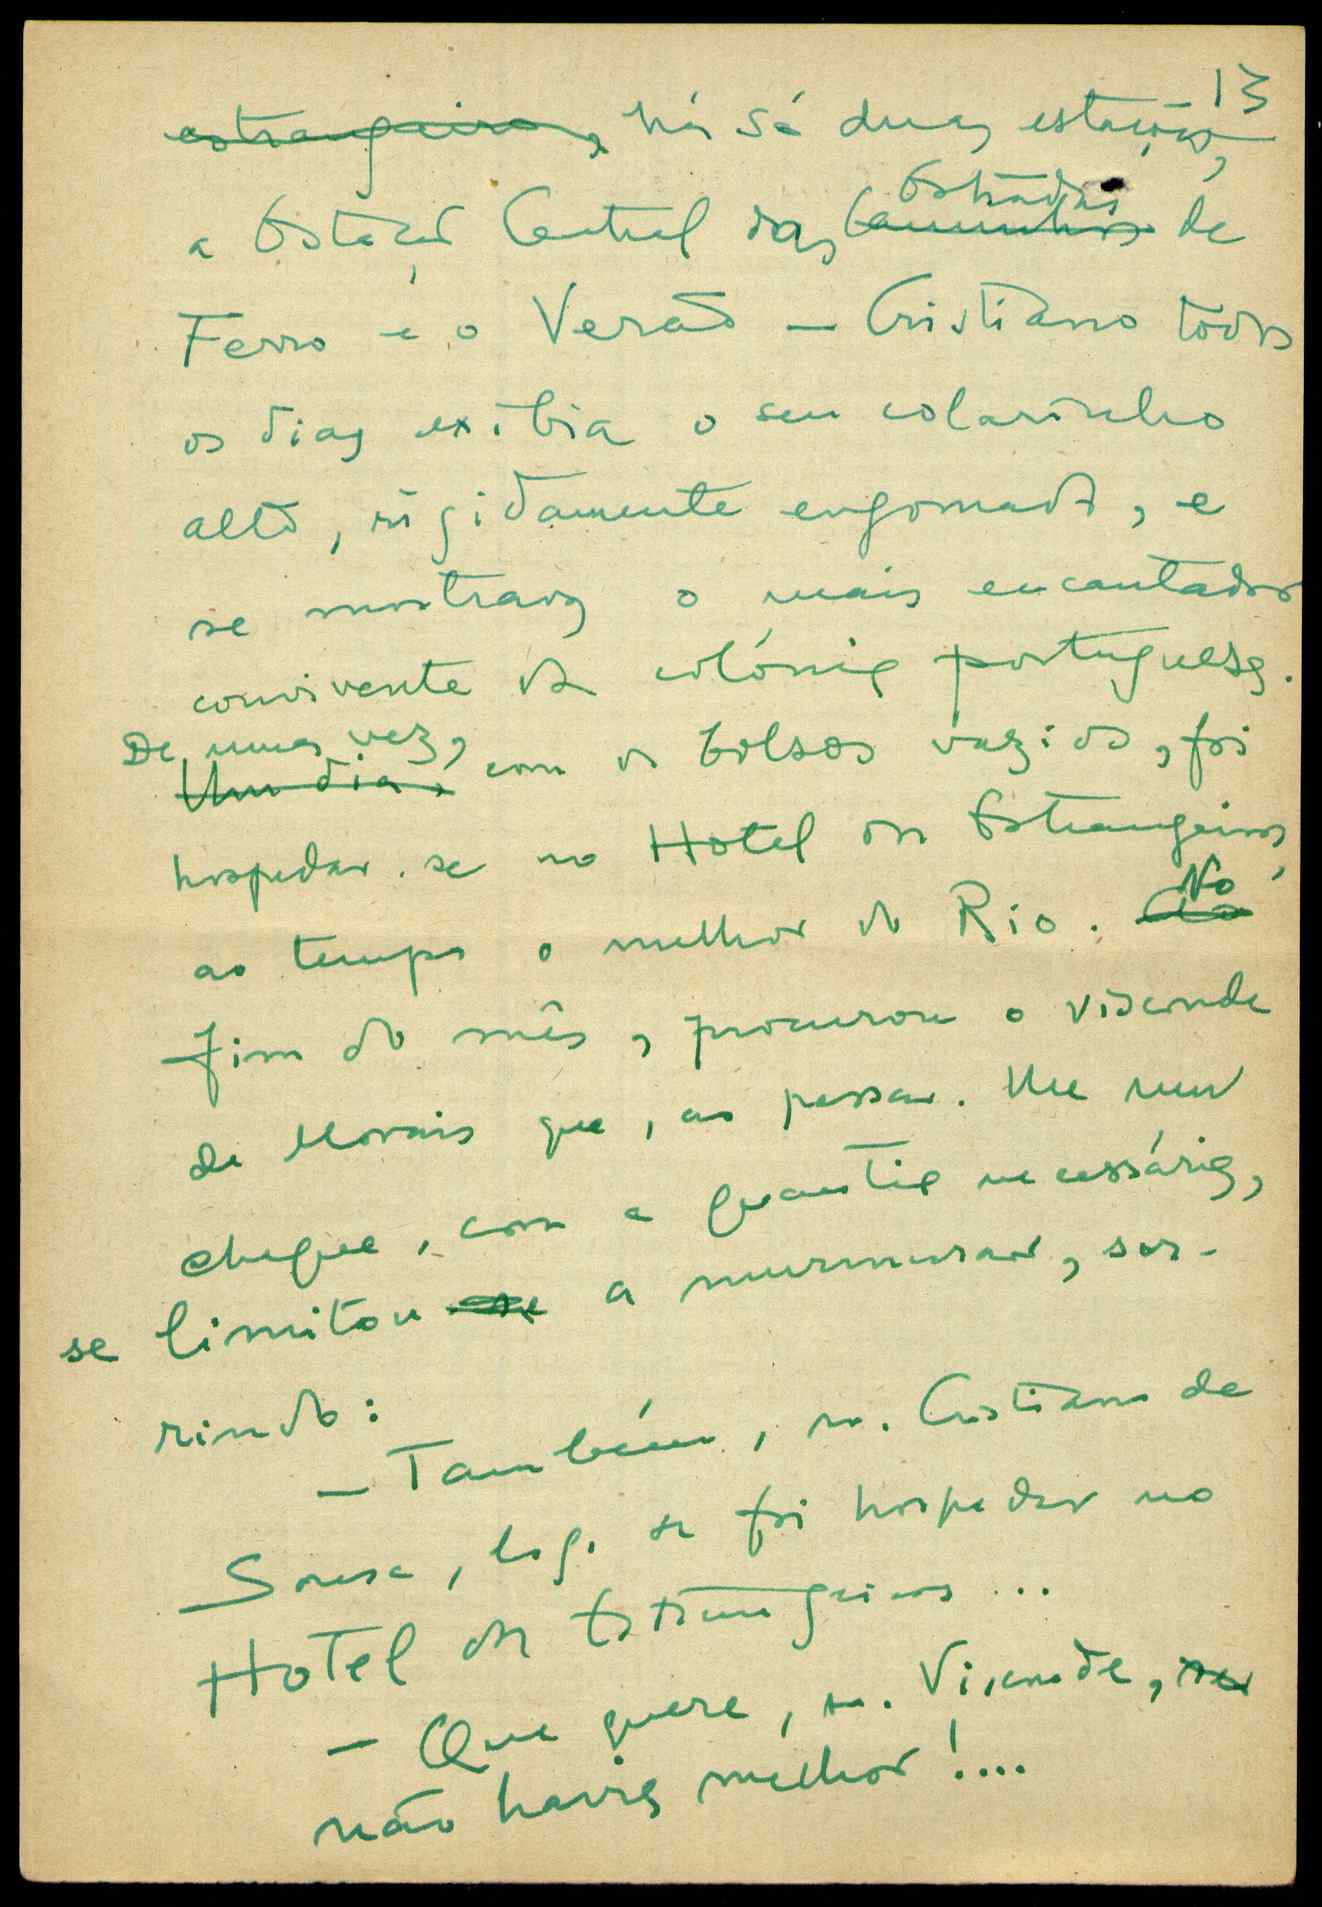 13
estrangeiro, há só duas estações,
Estradas
a Estação Central das Caminhos de
Ferro e o Verão — Cristiano todos
os dias exibia o seu colarinho
alto, rigidamente engomado, e
se mostrava o mais encantador
convivente da colónia portuguesa.
De uma vez,
Um dia, com os bolsos vazios, foi
hospedar-se no Hotel dos Estrangeiros,
No
ao tempo o melhor do Rio. Ao
fim do mês, procurou o visconde
de Morais que, ao passar-lhe um
cheque, com a quantia necessária,
se limitou se a murmurar, sor-
rindo:
— Também, sr. Cristiano de
Sousa, logo se foi hospedar no
Hotel dos Estrangeiros...
— Que quere, sr. Visconde,
não havia melhor!...